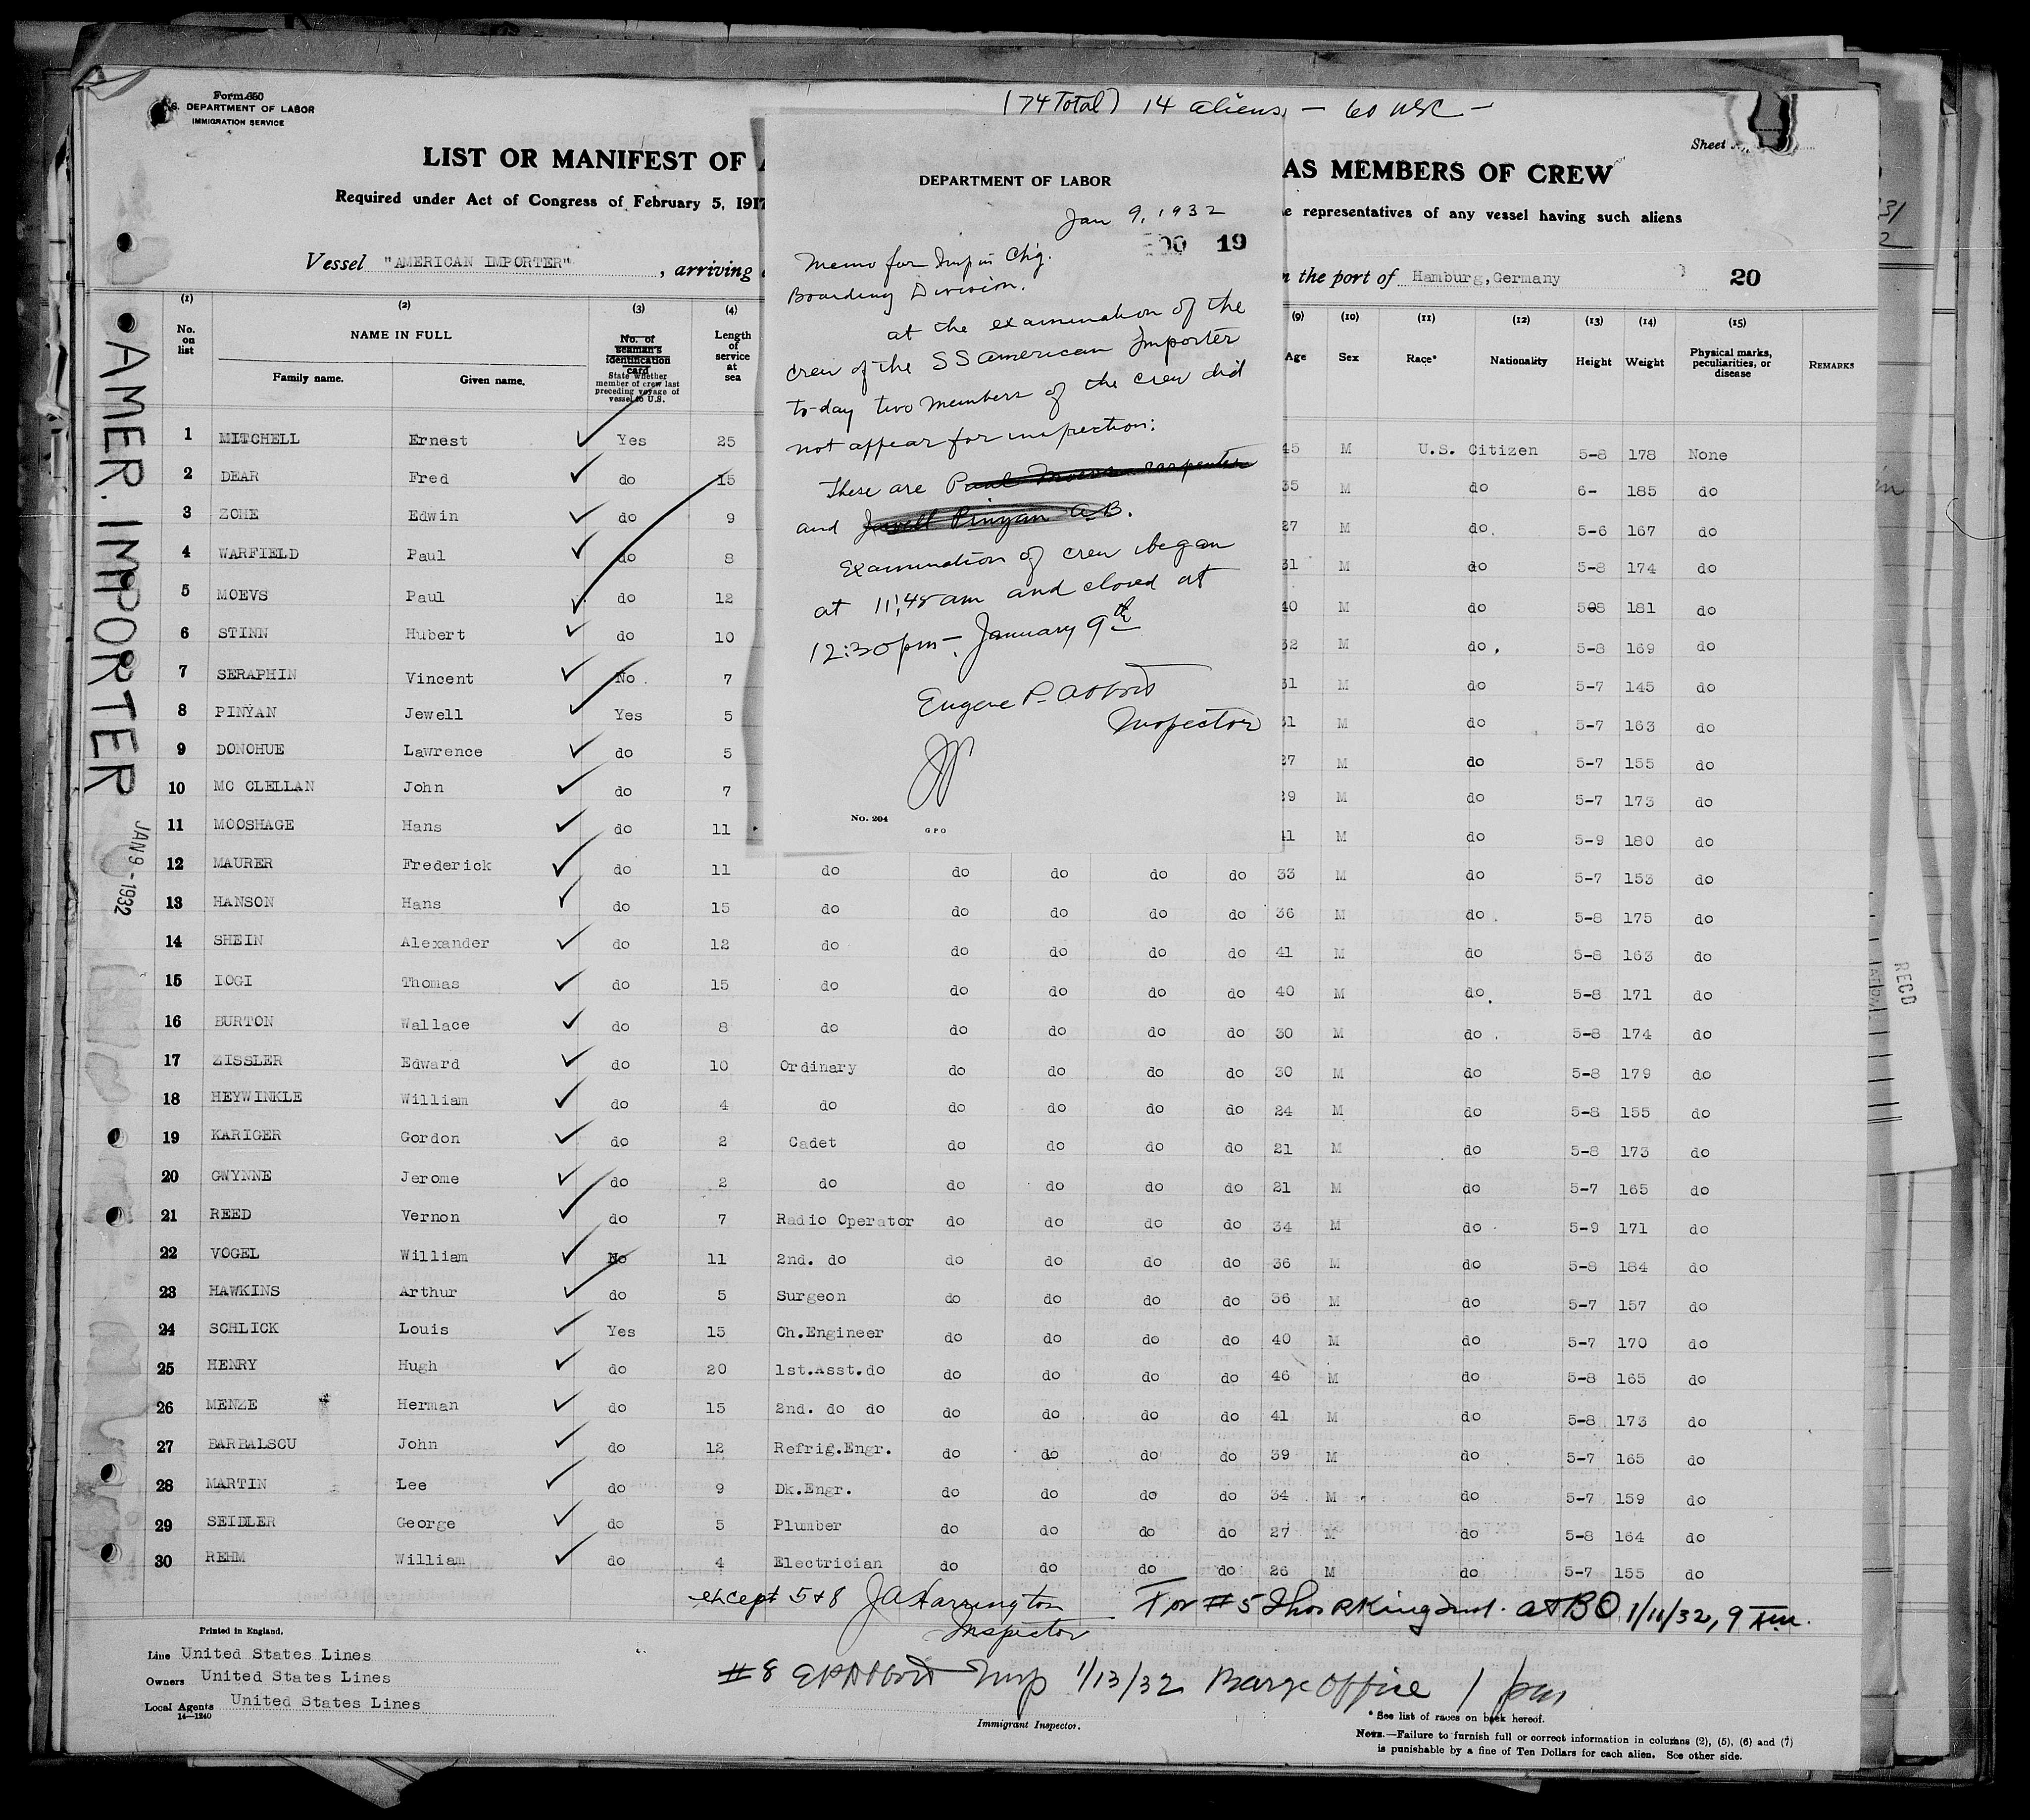 (74 Total) 14 aliens, — 60 USC —
Form 650
U.S. DEPARTMENT OF LABOR
IMMIGRATION SERVICE
Sheet
LIST OR MANIFEST OF A
AS MEMBERS OF CREW
Required under Act of Congress of February 5, 1917
e representatives of any vessel having such aliens
Vessel "AMERICAN IMPORTER" , arriving
the port of Hamburg,Germany 20
AMER. IMPORTER
JAN 9 - 1932
DEPARTMENT OF LABOR
Jan 9, 1932
19
Memo for Insp in Chg.
Boarding Division.
at the examination of the
crew of the SS American Importer
to-day two members of the crew did
not appear for inspection:
These are Paul Moevs carpenter
and Jewell Pinyan A.B.
Examination of crew began
at 11:45 am and closed at
12:30 pm -. January 9th
Eugene P. Abbott
Inspector
No. 204
GPO
(1) (2) (3) (4) (9) (10) (11) (12) (13) (14) (15)
No. on list NAME IN FULL Family name. Given name. No. of seaman's identification card State whether member of crew last preceding voyage of vessel to U.S. Length of service at sea Age Sex Race* Nationality Height Weight Physical marks, peculiarities, or disease REMARKS
1 MITCHELL Ernest Yes 25 45 M U.S. Citizen 5-8 178 None
2 DEAR Fred do 15 35 M do 6- 185 do
3 ZOHE Edwin do 9 27 M do. 5-6 167 do
4 WARFIELD Paul do 8 31 M do 5-8 174 do
5 MOEVS Paul do 12 40 M do 508 181 do
6 STINN Hubert do 10 32 M do. 5-8 169 do
7 SERAPHIN Vincent No. 7 31 M do 5-7 145 do
8 PINYAN Jewell Yes 5 31 M do 5-7 163 do
9 DONOHUE Lawrence do 5 27 M do 5-7 155 do
10 MC CLELLAN John do 7 29 M do 5-7 173 do
11 MOOSHAGE Hans do 11 41 M do 5-9 180 do
12 MAURER Frederick do 11 do do do do do 33 M do 5-7 153 do
13 HANSON Hans do 15 do do do do do 36 M do. 5-8 175 do
14 SHEIN Alexander do 12 do do do do do 41 M do 5-8 163 do
15 IOGI Thomas do 15 do do do do do 40 M do. 5-8 171 do
16 BURTON Wallace do 8 do do do do do 30 M do. 5-8 174 do
17 ZISSLER Edward do 10 Ordinary do do do do 30 M do 5-8 179 do
18 HEYWINKLE William do 4 do do do do do 24 M do 5-8 155 do
19 KARIGER Gordon do 2 Cadet do do do do 21 M do 5-8 173 do
20 GWYNNE Jerome do 2 do do do do do 21 M do 5-7 165 do
21 REED Vernon do 7 Radio Operator do do do do 34 M do 5-9 171 do
22 VOGEL William No 11 2nd. do do do do do 36 M do 5-8 184 do
23 HAWKINS Arthur do 5 Surgeon do do do do 36 M do 5-7 157 do
24 SCHLICK Louis Yes 15 Ch.Engineer do do do do 40 M do 5-7 170 do
25 HENRY Hugh do 20 1st.Asst.do do do do do 46 M do 5-8 165 do
26 MENZE Herman do 15 2nd. do do do do do do 41 M do 5-8 173 do
27 BARBALSCU John do 12 Refrig.Engr. do do do do 39 M do 5-7 165 do
28 MARTIN Lee do 9 Dk.Engr. do do do do 34 M do 5-7 159 do
29 SEIDLER George do 5 Plumber do do do do 27 M do 5-8 164 do
30 REHM William do 4 Electrician do do do do 26 M do 5-7 155 do
except 5 & 8 JA Harrington
Inspector
For #5 Thos R King Insp. at BO 1/11/32, 9 am.
#8 EP Abbott Insp 1/13/32 Barge Office 1 pm
Printed in England.
Line United States Lines
Owners United States Lines
Local Agents United States Lines
14—1240
Immigrant Inspector.
* See list of races on back hereof.
NOTE.—Failure to furnish full or correct information in columns (2), (5), (6) and (7)
is punishable by a fine of Ten Dollars for each alien. See other side.
RECD